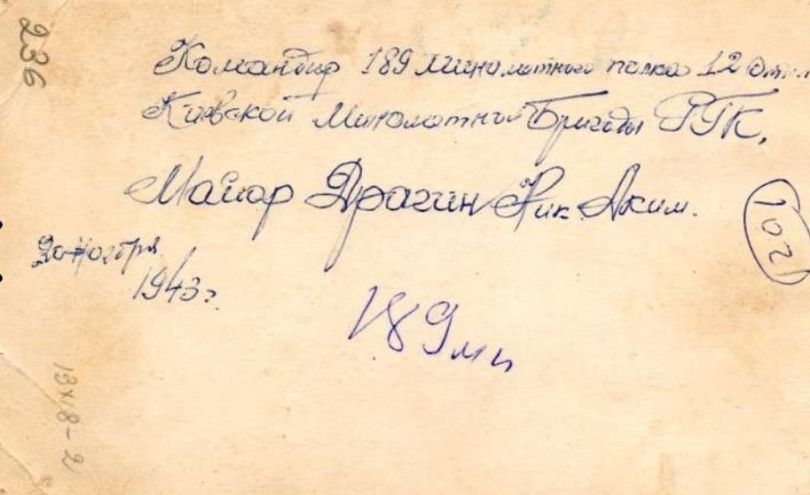 236
Командир 189 Минометного полка 12
Киевской Минометной Бригады РГК,
Майор Драгин Ник. Аким.
20 Ноября
1943 г.
102
189 мп
13х18-2